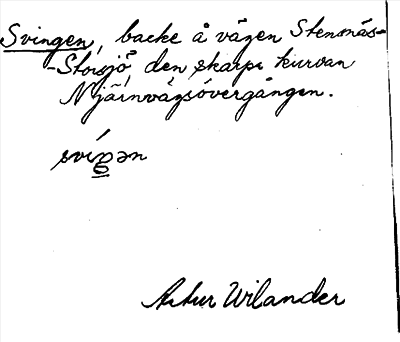 Svingen, backe å vägen Stensnäs-
-Storsjö, den skarpa kurvan
N järnvägsövergången.
svíŋən
Artur Wilander